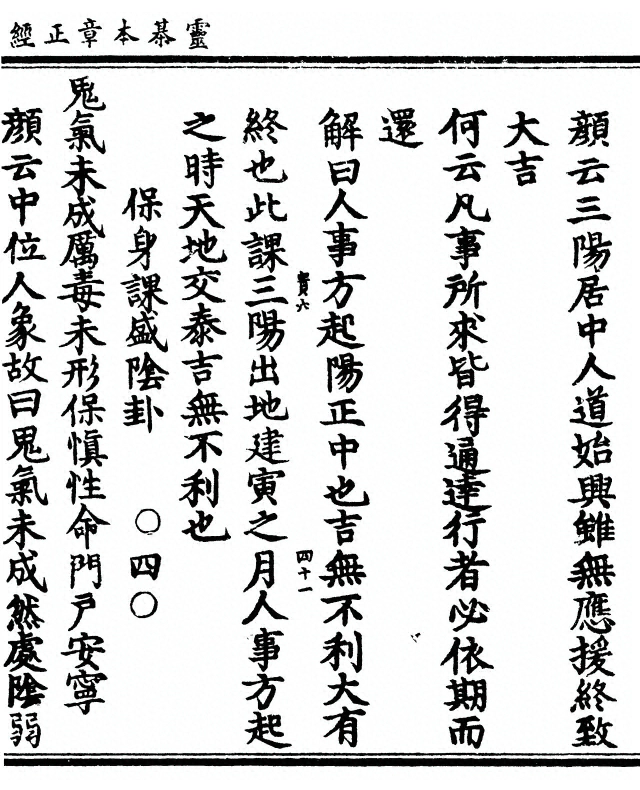 靈棊本章正經
顔云三陽居中人道始興雖無應援終致
大吉
何云凡事所求皆得通達行者必依期而
還
解曰人事方起陽正中也吉無不利大有
寳六
四十一
終也此課三陽出地建寅之月人事方起
之時天地交泰吉無不利也
保身課盛陰卦
○四○
鬼氣未成厲毒未形保慎性命門戸安寧
顔云中位人象故曰鬼氣未成然處陰弱